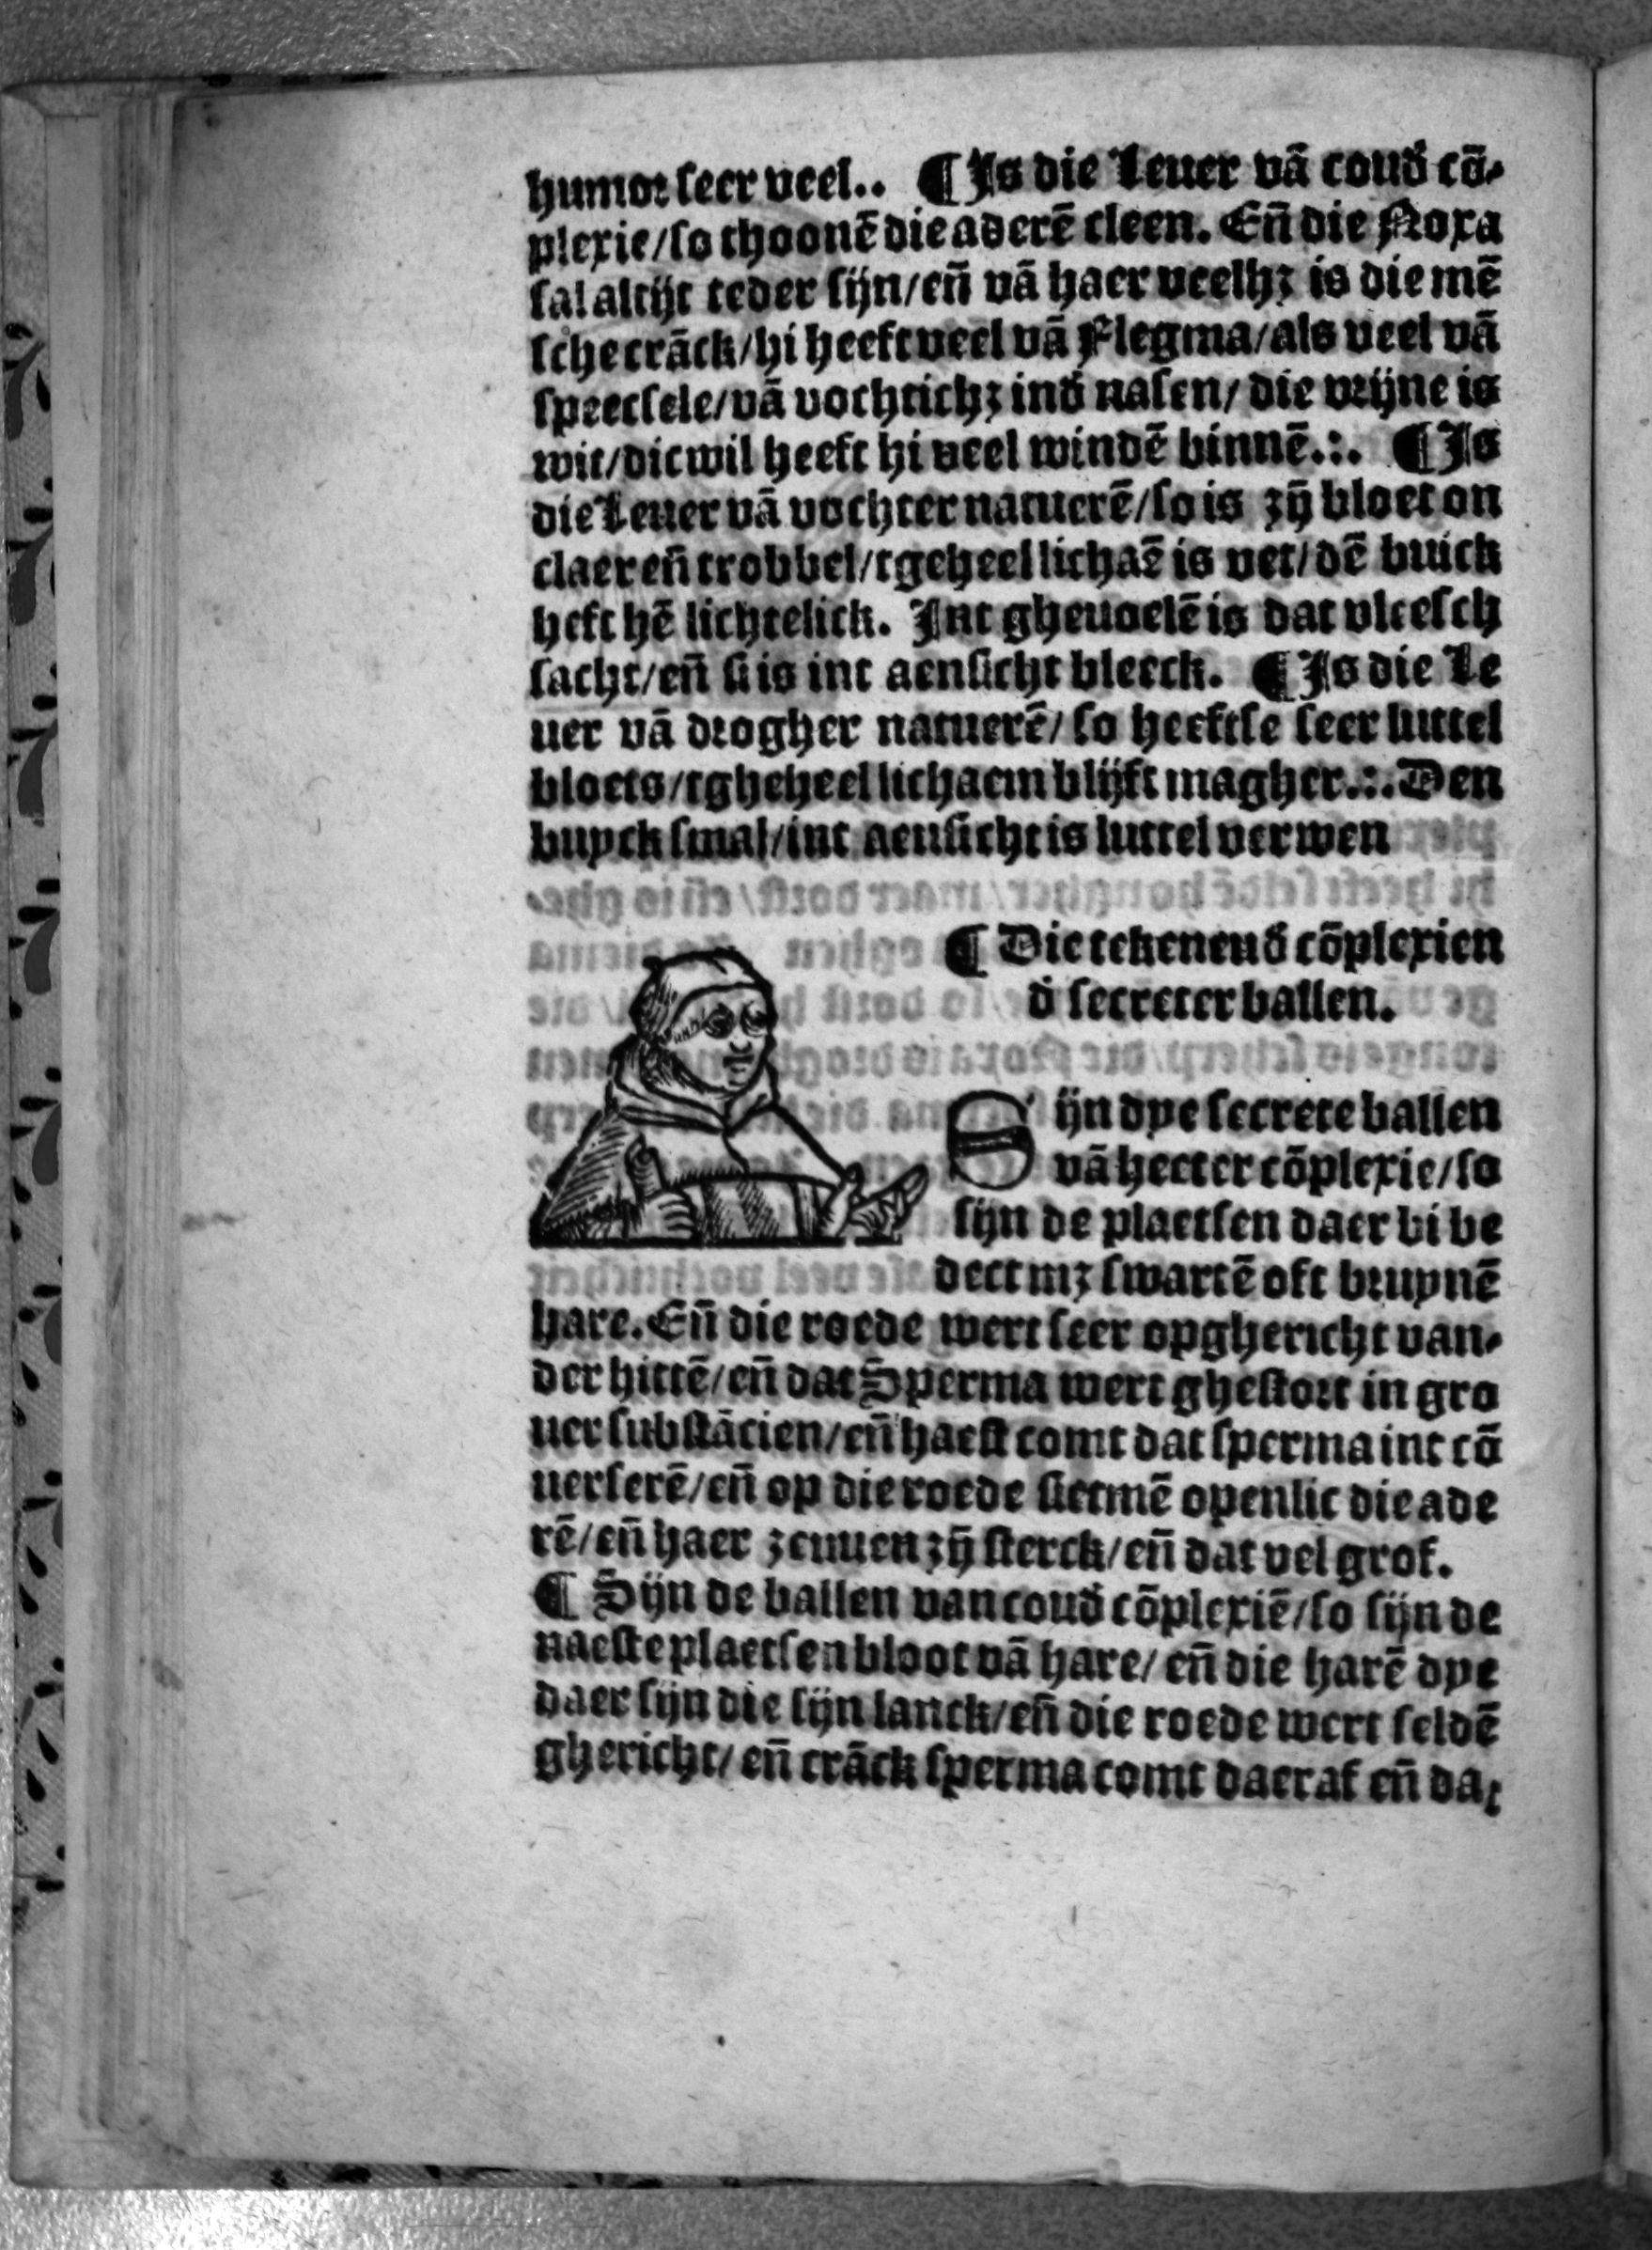 humor seer veel.. ¶ Is die Leuer vā coud̄ cō-
plexie/so thoonē die aderē cleen. Eñ die Noxa
sal altijt teder sijn/eñ vā haer veelhꝫ is die mē
sche crāck/hi heeft veel vā Flegma/als veel vā
speecsele/vā vochtichꝫ ind̄ nasen/ die vrijne is
wit/dicwil heeft hi veel windē binnē.:. ¶ Is
die Leuer vā vochter natuerē/so is zȳ bloet on
claer eñ trobbel/tgeheel lichaē is vet/dē buick
heft hē lichtelick. Int gheuoelē is dat vleesch
sacht/eñ si is int aensicht bleeck. ¶ Is die Le
uer vā drogher natuerē/ so heeftse seer luttel
bloets/tgheheel lichaem blijft magher.:. Den
buyck smal/int aensicht is luttel verwen
¶ Die tekenend̄ cōplexien
d̄ secreter ballen.
Sijn dye secrete ballen
vā heeter cōplexie/so
sijn de plaetsen daer bi be
dect mꝫ swartē oft bruynē
hare. Eñ die roede wert seer opghericht van-
der hittē/eñ dat Sperma wert ghestort in gro
uer substācien/eñ haest comt dat sperma int cō
uerserē/eñ op die roede sietmē openlic die ade
rē/eñ haer zenuen zȳ sterck/eñ dat vel grof.
¶ Sijn de ballen van coud̄ cōplexiē/so sijn de
naeste plaetsen bloot vā hare/ eñ die harē dye
daer sijn die sijn lanck/eñ die roede wert seldē
ghericht/ eñ crāck sperma comt daer af eñ dat